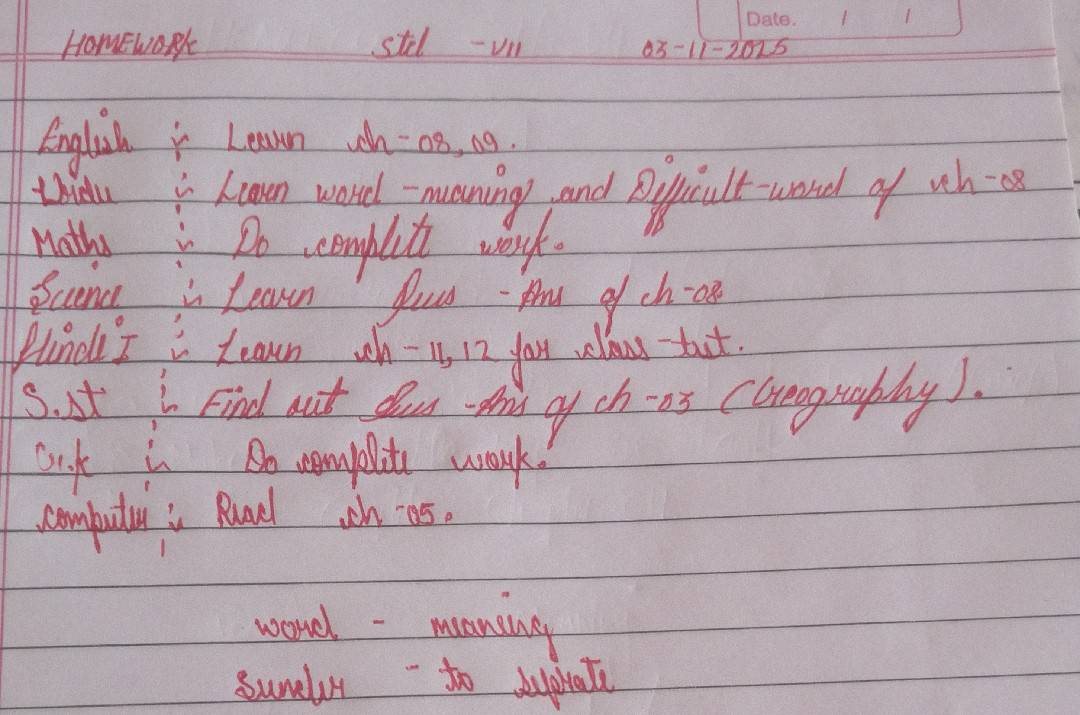 Date. / /
HOMEWORK std - VII 03-11-2025
English :- Learn ch-08, 09.
Urdu :- Learn word-meaning and Difficult-word of ch-08
Maths :- Do complete work.
Science :- Learn Qus - Ans of ch-08
Hindi I :- Learn ch-11, 12 for class-test.
S.st :- Find out Qus - Ans of ch-03 (Geography).
G.k :- Do complete work.
computer :- Read ch-05.
word - meaning
Sunder - to seprate